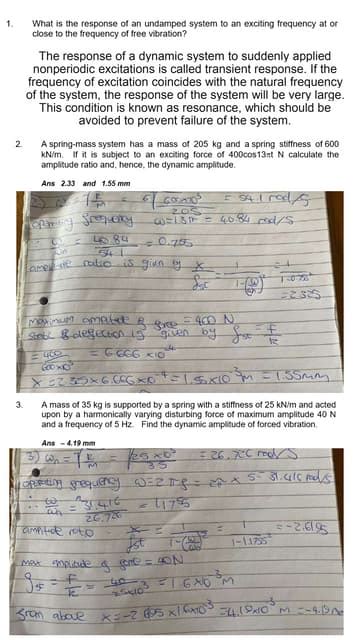 1. What is the response of an undamped system to an exciting frequency at or
close to the frequency of free vibration?
The response of a dynamic system to suddenly applied
nonperiodic excitations is called transient response. If the
frequency of excitation coincides with the natural frequency
of the system, the response of the system will be very large.
This condition is known as resonance, which should be
avoided to prevent failure of the system.
2. A spring-mass system has a mass of 205 kg and a spring stiffness of 600
kN/m. If it is subject to an exciting force of 400cos13πt N calculate the
amplitude ratio and, hence, the dynamic amplitude.
Ans 2.33 and 1.55 mm
= 54.1 rad/s
205
operating frequency ω=13π = 40.84 rad/s
∴ ω/ωn = 40.84/54.1 = 0.755
amplitude ratio is given by x/δst = 1/1-(ω/ωn)² = 1/1-0.755²
= 2.325
maximum amplitude of force = 400 N
static deflection is given by δst = F/k
= 400/600x10³ = 6.666 x10⁻⁴
= 1.55x10⁻³m = 1.55mm
3. A mass of 35 kg is supported by a spring with a stiffness of 25 kN/m and acted
upon by a harmonically varying disturbing force of maximum amplitude 40 N
and a frequency of 5 Hz. Find the dynamic amplitude of forced vibration.
Ans – 4.19 mm
3) ωn = √k/m = √25x10³/35 = 26.726 rad/s
operating frequency ω=2πf = 2π x 5 = 31.416 rad/s
∴ ω/ωn = 31.416/26.726 = 1.1755
amplitude ratio x/δst = 1/1-(ω/ωn)² = 1/1-1.1755² = -2.6195
max amplitude of force = 40N
δst = F/k = 40/25x10³ = 1.6x10⁻³m
from above